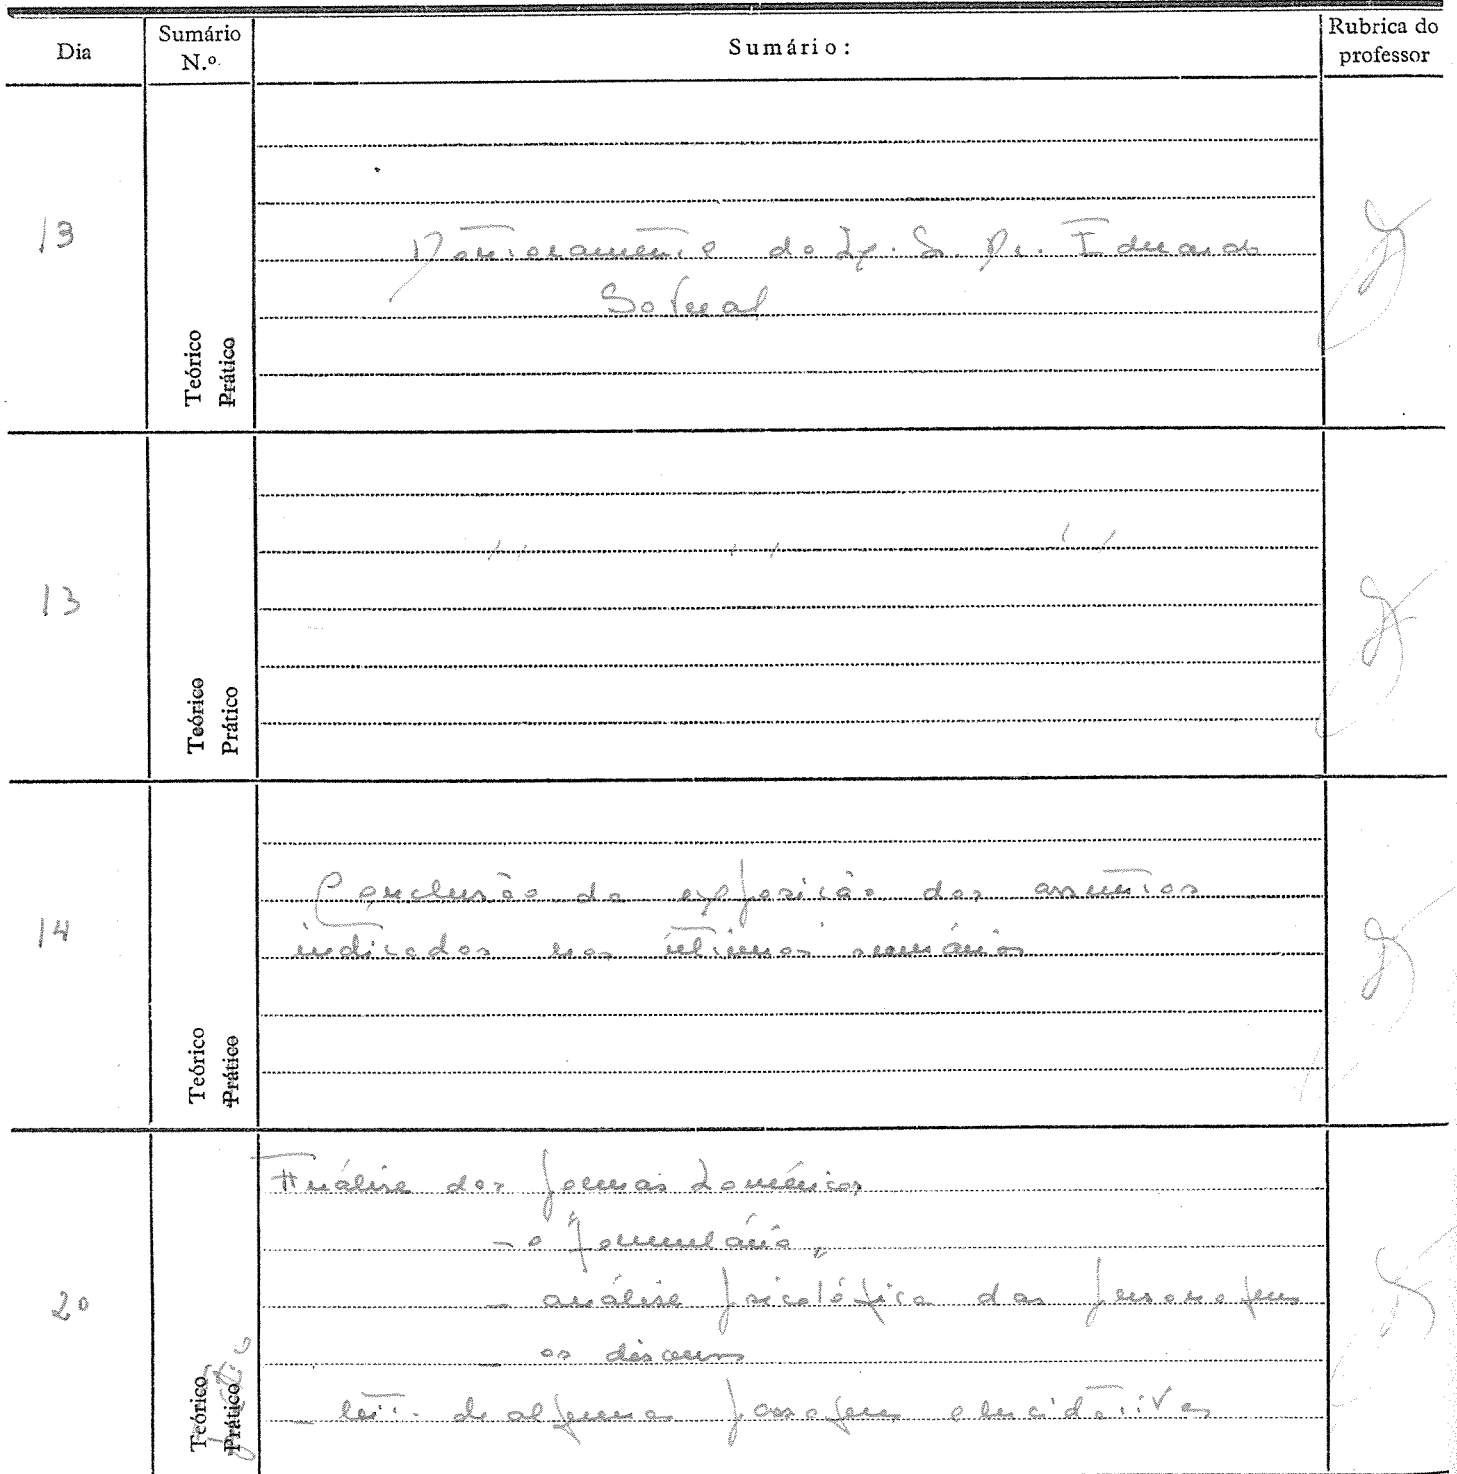 Dia
Sumário
N.º
Sumário:
Rubrica do
professor
13
Doutoramento do Dr. Eduardo
Teórico
Prático
13
" " "
Teórico
Prático
14
Conclusão da exposição dos assuntos
indicados nos últimos sumários
Teórico
Prático
20
Análise dos poemas homéricos
- o formulário
- análise psicológica das personagens
- os discursos
- de algumas passagens elucidativas
Teórico
Prático